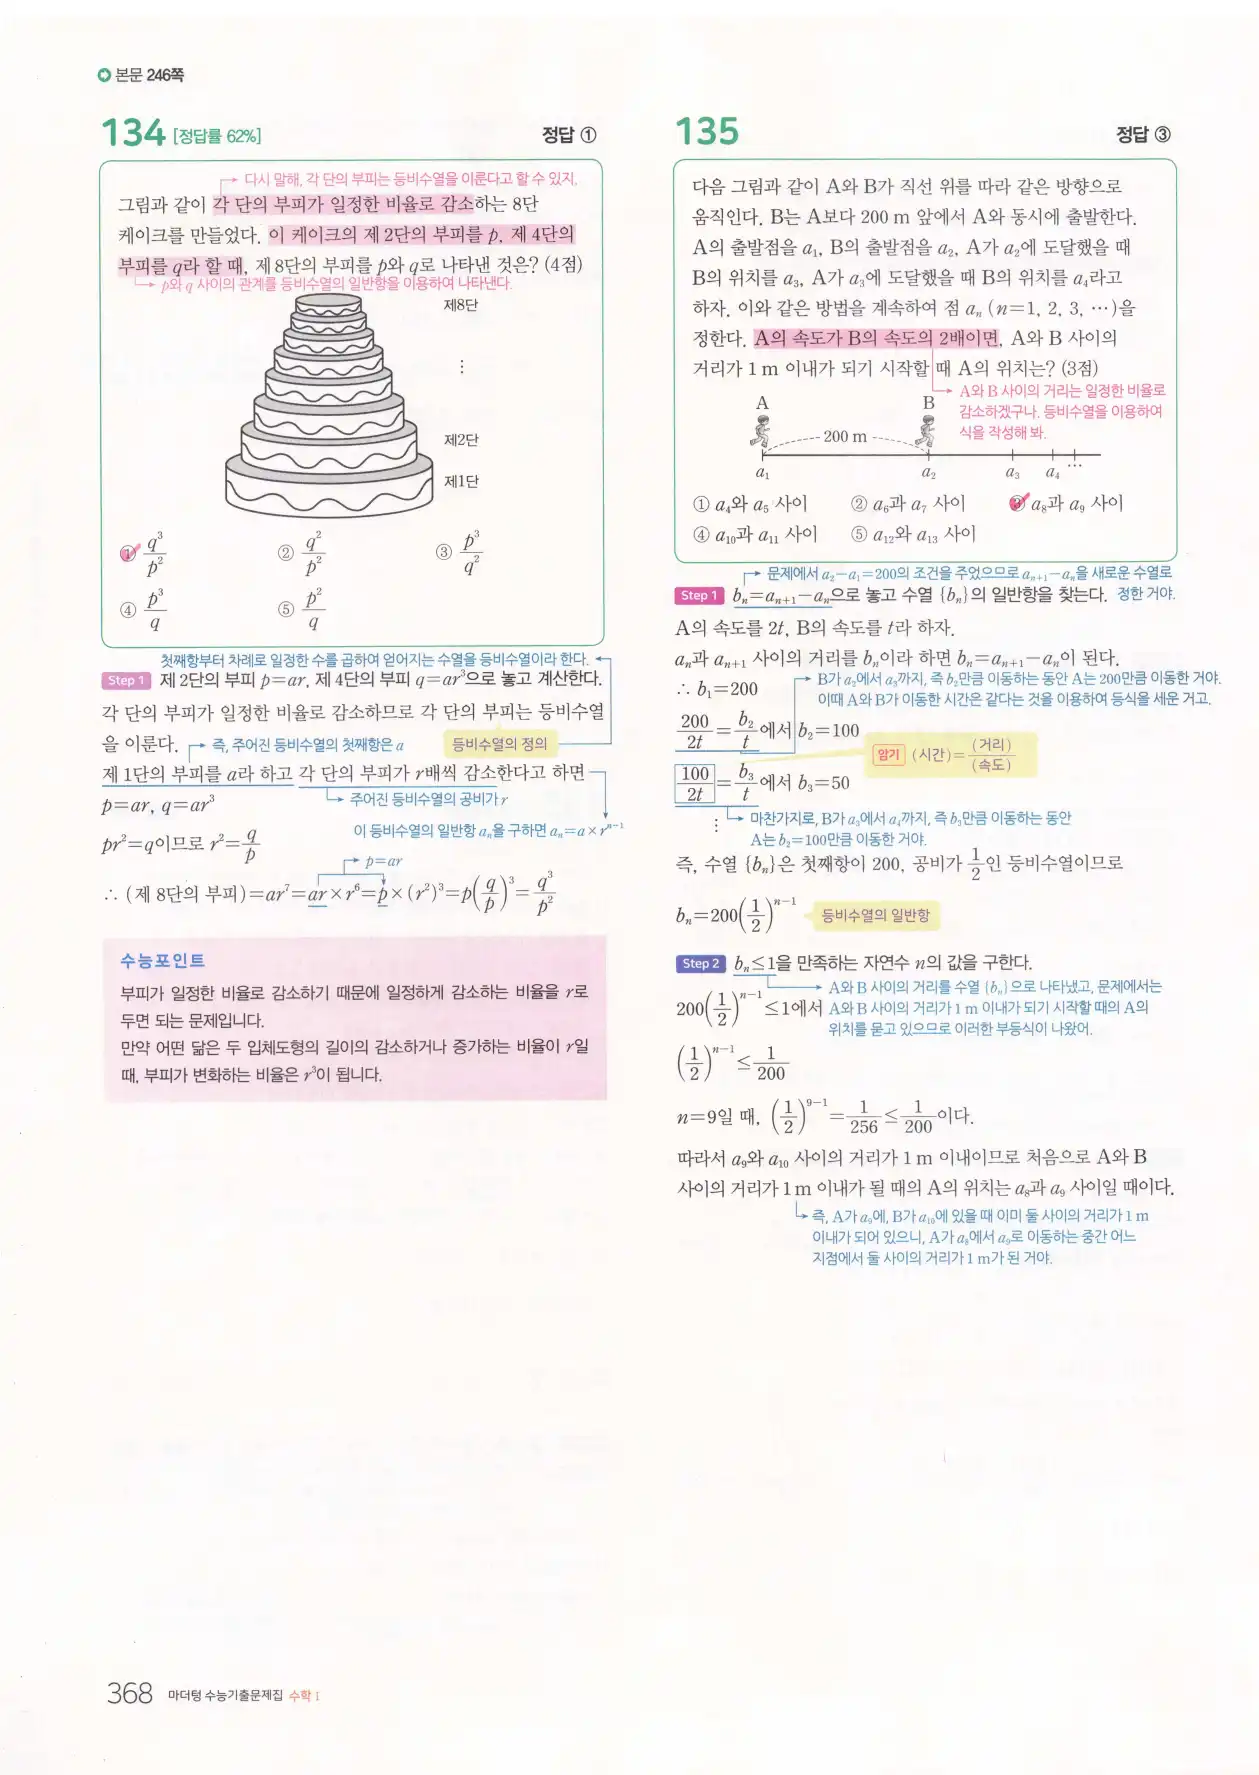 본문 246쪽
134 [정답률 62%] 정답 ①
다시 말해, 각 단의 부피는 등비수열을 이룬다고 할 수 있지.
그림과 같이 각 단의 부피가 일정한 비율로 감소하는 8단
케이크를 만들었다. 이 케이크의 제 2단의 부피를 p, 제 4단의
부피를 q라 할 때, 제 8단의 부피를 p와 q로 나타낸 것은? (4점)
p와 q 사이의 관계를 등비수열의 일반항을 이용하여 나타낸다.
제8단
⋮
제2단
제1단
① q³/p² ② q²/p² ③ p³/q²
④ p³/q ⑤ p²/q
첫째항부터 차례로 일정한 수를 곱하여 얻어지는 수열을 등비수열이라 한다.
Step 1 제 2단의 부피 p=ar, 제 4단의 부피 q=ar³으로 놓고 계산한다.
각 단의 부피가 일정한 비율로 감소하므로 각 단의 부피는 등비수열
을 이룬다. 즉, 주어진 등비수열의 첫째항은 a 등비수열의 정의
제 1단의 부피를 a라 하고 각 단의 부피가 r배씩 감소한다고 하면
p=ar, q=ar³ 주어진 등비수열의 공비가 r
이 등비수열의 일반항 aₙ을 구하면 aₙ=a×rⁿ⁻¹
pr²=q이므로 r²=q/p
p=ar
∴ (제 8단의 부피)=ar⁷=ar×r⁶=p×(r²)³=p(q/p)³=q³/p²
수능포인트
부피가 일정한 비율로 감소하기 때문에 일정하게 감소하는 비율을 r로
두면 되는 문제입니다.
만약 어떤 닮은 두 입체도형의 길이의 감소하거나 증가하는 비율이 r일
때, 부피가 변화하는 비율은 r³이 됩니다.
135 정답 ③
다음 그림과 같이 A와 B가 직선 위를 따라 같은 방향으로
움직인다. B는 A보다 200 m 앞에서 A와 동시에 출발한다.
A의 출발점을 a₁, B의 출발점을 a₂, A가 a₂에 도달했을 때
B의 위치를 a₃, A가 a₃에 도달했을 때 B의 위치를 a₄라고
하자. 이와 같은 방법을 계속하여 점 aₙ (n=1, 2, 3, ⋯)을
정한다. A의 속도가 B의 속도의 2배이면, A와 B 사이의
거리가 1 m 이내가 되기 시작할 때 A의 위치는? (3점)
A와 B 사이의 거리는 일정한 비율로
감소하겠구나. 등비수열을 이용하여
식을 작성해 봐.
A B
200 m
a₁ a₂ a₃ a₄ ⋯
① a₄와 a₅ 사이 ② a₆과 a₇ 사이 ③ a₈과 a₉ 사이
④ a₁₀과 a₁₁ 사이 ⑤ a₁₂와 a₁₃ 사이
문제에서 a₂−a₁=200의 조건을 주었으므로 aₙ₊₁−aₙ을 새로운 수열로
Step 1 bₙ=aₙ₊₁−aₙ으로 놓고 수열 {bₙ}의 일반항을 찾는다. 정한 거야.
A의 속도를 2t, B의 속도를 t라 하자.
aₙ과 aₙ₊₁ 사이의 거리를 bₙ이라 하면 bₙ=aₙ₊₁−aₙ이 된다.
∴ b₁=200
B가 a₂에서 a₃까지, 즉 b₂만큼 이동하는 동안 A는 200만큼 이동한 거야.
이때 A와 B가 이동한 시간은 같다는 것을 이용하여 등식을 세운 거고.
200/2t=b₂/t에서 b₂=100
암기 (시간)=(거리)/(속도)
100/2t=b₃/t에서 b₃=50
⋮ 마찬가지로, B가 a₃에서 a₄까지, 즉 b₃만큼 이동하는 동안
A는 b₂=100만큼 이동한 거야.
즉, 수열 {bₙ}은 첫째항이 200, 공비가 1/2인 등비수열이므로
bₙ=200(1/2)ⁿ⁻¹ 등비수열의 일반항
Step 2 bₙ≤1을 만족하는 자연수 n의 값을 구한다.
A와 B 사이의 거리를 수열 {bₙ}으로 나타냈고, 문제에서는
200(1/2)ⁿ⁻¹≤1에서 A와 B 사이의 거리가 1 m 이내가 되기 시작할 때의 A의
위치를 묻고 있으므로 이러한 부등식이 나왔어.
(1/2)ⁿ⁻¹≤1/200
n=9일 때, (1/2)⁹⁻¹=1/256≤1/200이다.
따라서 a₉와 a₁₀ 사이의 거리가 1 m 이내이므로 처음으로 A와 B
사이의 거리가 1 m 이내가 될 때의 A의 위치는 a₈과 a₉ 사이일 때이다.
즉, A가 a₉에, B가 a₁₀에 있을 때 이미 둘 사이의 거리가 1 m
이내가 되어 있으니, A가 a₈에서 a₉로 이동하는 중간 어느
지점에서 둘 사이의 거리가 1 m가 된 거야.
368 마더텅 수능기출문제집 수학 I